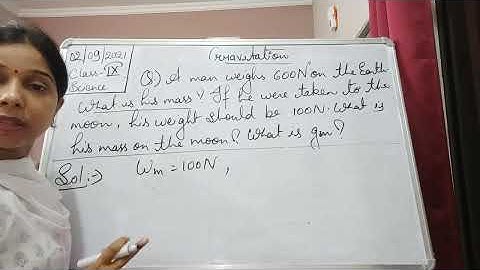 02/09/2021
Class-IX
Science
Gravitation
Q1) A man weighs 600N on the Earth
What is his mass? If he were taken to the
moon, his weight should be 100N. What is
his mass on the moon? What is gm?
Sol:→ Wm = 100N,